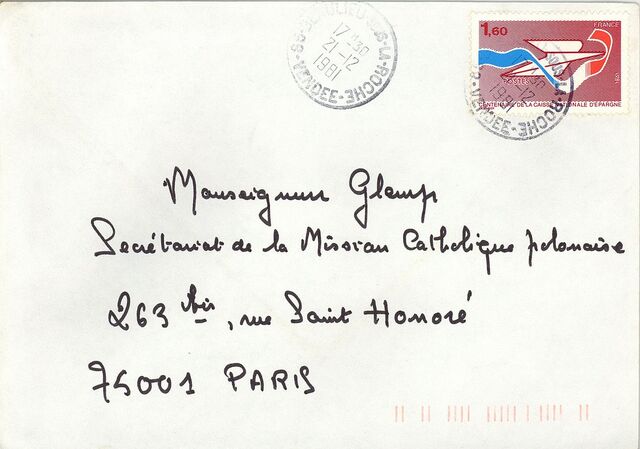 85-BEAULIEU-S/S-LA-ROCHE
17 H 30
21-12
1981
VENDEE
1,60
FRANCE
POSTES
1981
CENTENAIRE DE LA CAISSE NATIONALE D'ÉPARGNE
Monseigneur Glemp
Secrétariat de la Mission Catholique polonaise
263 bis, rue Saint Honoré
75001 PARIS